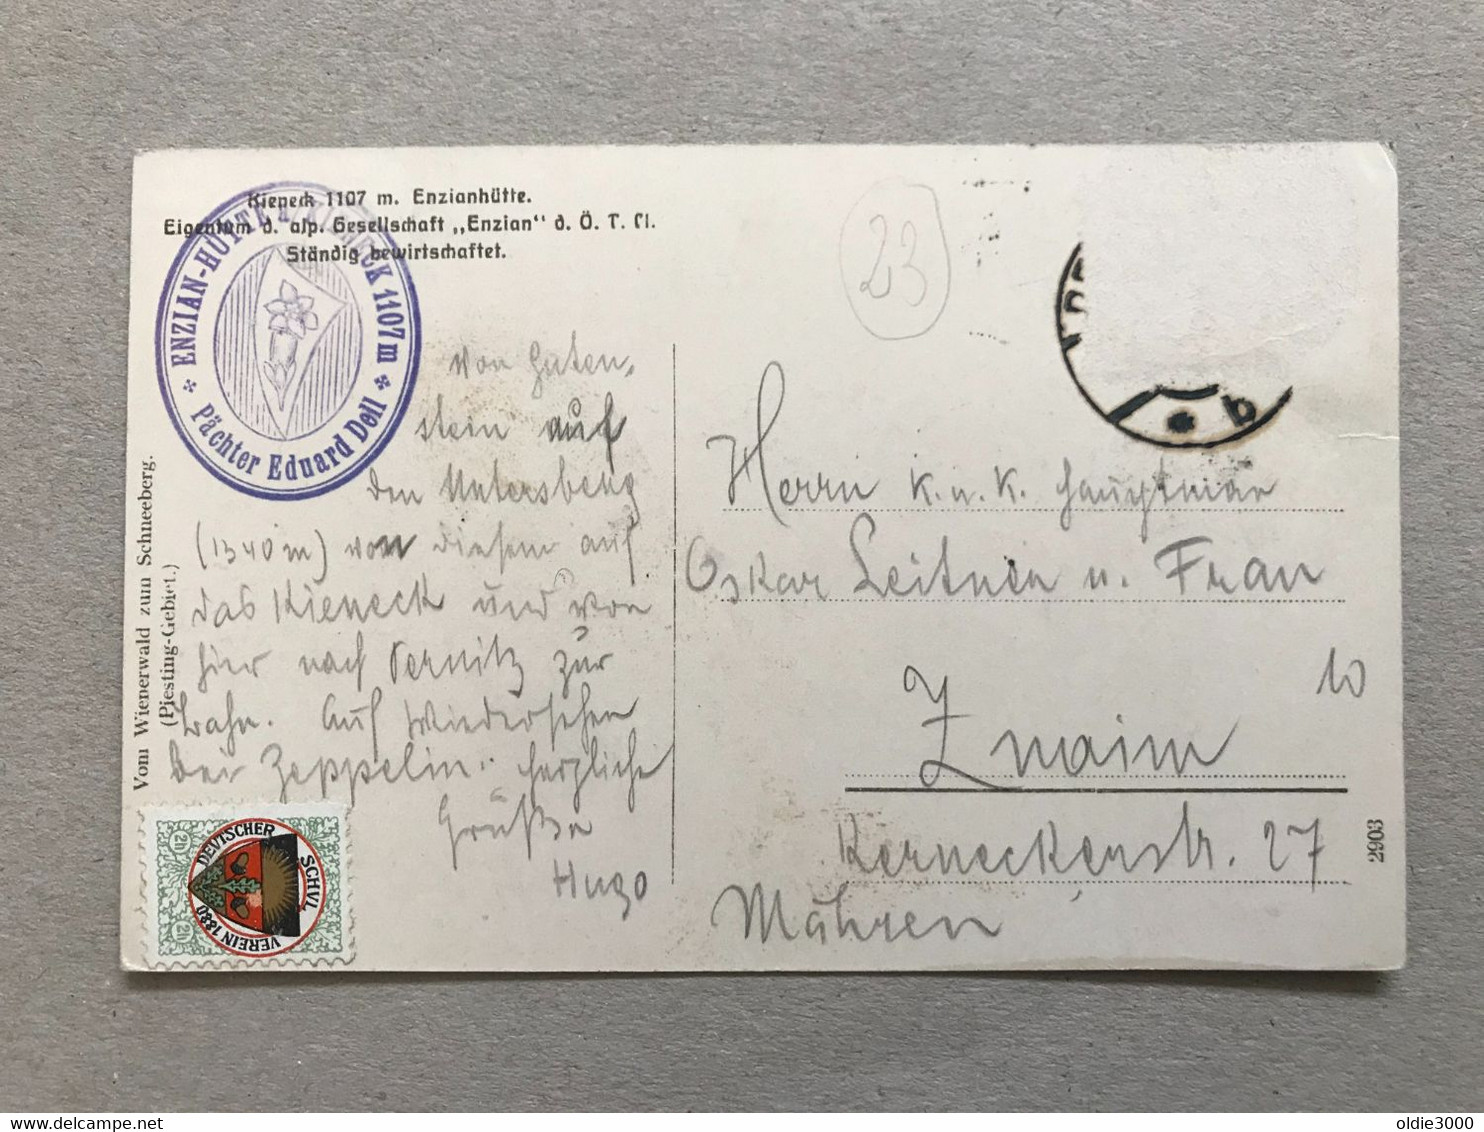 Kieneck 1107 m. Enzianhütte.
Eigentum d. alp. Gesellschaft „Enzian" d. Ö. T. Cl.
Ständig bewirtschaftet.
ENZIAN-HÜTTE KIENECK 1107 m
Pächter Eduard Dell
Vom Wienerwald zum Schneeberg.
(Piesting-Gebiet.)
23
b
von Guten-
stein auf
den Untersberg
(1340 m) von diesem auf
das Kieneck und von
hier nach Pernitz zur
Bahn. Auf Wiedersehen
bei Zeppelin. herzliche
Grüße
Hugo
Herrn k. u. k. Hauptman
Oskar Leitner u. Frau
10
Znaim
Kerneckerstr. 27
Mähren
2903
DEVTSCHER SCHVL VEREIN 1880
2h
2h
delcampe.net
oldie3000